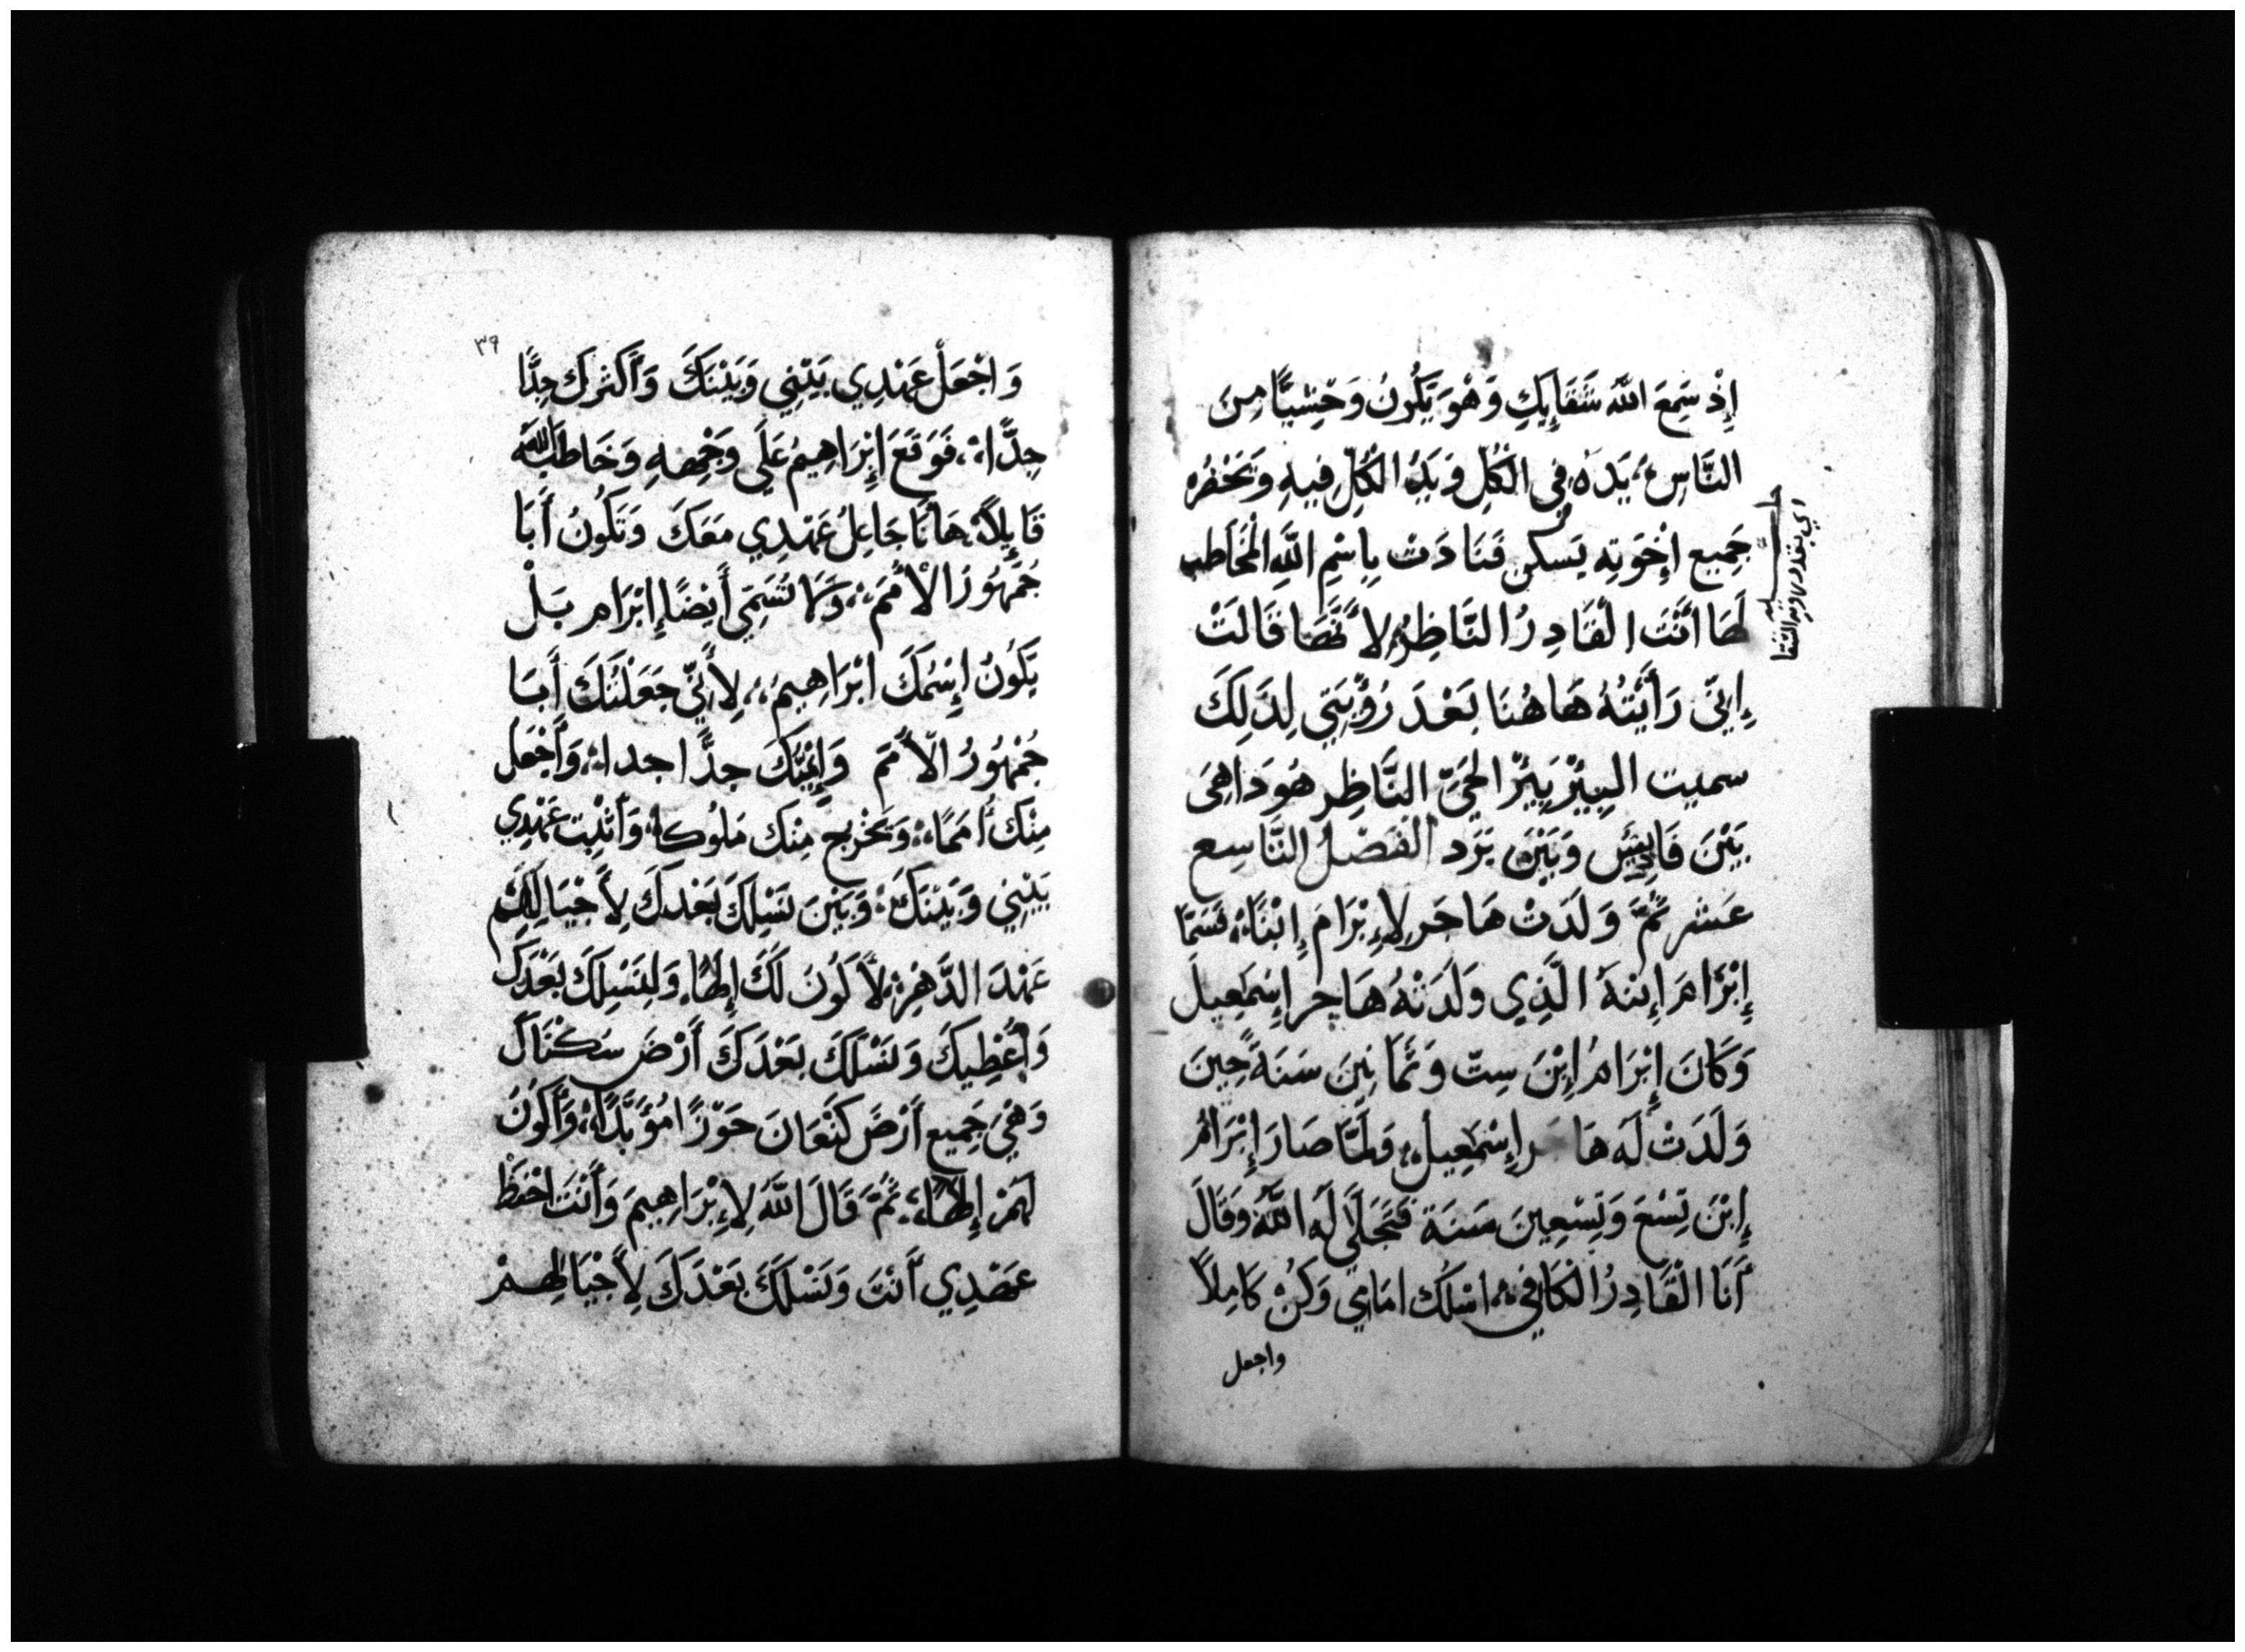 إِذْ سَمِعَ اللّه شَقَايِكِ وَهْوَ يَكُونُ وَحْشِيًّا مِنَ
النَّاسِ، يَدَهُ فِي الْكُلِّ وَيَدُ الْكُلِّ فِيهِ وَبَحَضْرُه
جَمِيع اِخْوَتِه يَسكن فَنَادَت بِاسْمِ اللَّهِ الْمُخَاطب
لَهَا أَنْتَ الْقَادِرُ النَّاظِرُ لأَنَّهَا قَالَتْ
إِنِّى رَأَيْتُهُ هَاهُنَا بَعْدَ رُؤْيَتِي لِذَلِكَ
سميت البِيْرْ بِيْرْ الحَيّ النَّاظِر هُوَدَاهِىَ
بَيْنَ قَادِيسَ وَبَيْنَ بَرَد الفَصْل التَّاسِع
عَشر ثُمَّ وَلَدَتْ هَاجَر لِإِبْرَامَ إِبْنًا، فَسَمَّا
إِبْرَامَ إِبنَهُ الَّذِي وَلَدَتْهُ هَاجر إِسْمَعِيلَ
وَكَانَ إِبْرَامُ إِبْنَ سِتّ وَثَمَانِينَ سَنَةً حِينَ
وَلَدَتْ لَه هَاجَر إِسْمَعِيل، وَلَمَّا صَارَ إِبْرَامُ
إِبْنَ تِسْعَ وَتِسْعِينَ سَنَة تَجَلَّى لَه اللَّه وَقَالَ
أَنَا الْقَادِرُ الْكَافِي، اسْلك امَامِي وَكُنْ كَامِلاً
واجعل
٣٩
وَاجْعَلْ عَهْدِي بَيْنِي وَبَيْنَكَ وَأَكثرك جِدًّا
جِدًّا، فَوَقَعَ إِبْرَاهِيمُ عَلَى وَجْهِهِ وَخَاطَبَه اللَّه
قَايِلاً، هَا أنَا جَاعِلُ عَهْدِي مَعَكَ وَتَكُونُ أَبَا
جُمْهُورُ الْأُمَمَ، وَلَا تُسَمَّي أَيْضًا إِبْرَام بَلْ
يَكُونُ إِسْمُكَ ابْرَاهِيمُ، لِأَنِّي جَعَلْتُكَ أَبَا
جُمْهُورُ الْأُمَمَ وَإِنْمِيكَ جِدًّا جدا، وَأَجْعَل
مِنْكَ أُمَمًا، وَتَخْرج مِنك مَلُوكا، وَأثْبت عَهْدِي
بَيْنِي وَبَيْنَكَ، وَبَيْنَ نَسْلِكَ بَعْدكَ لِأَجْيَالِهِمْ
عَهْدَ الدَّهْرِ، لأَكُونَ لَكَ إِلهًا، وَلِنَسْلِكَ بَعْدَكَ
وَأُعْطِيكَ وَنَسْلَكَ بَعْدَكَ أَرْضَ سُكْنَاكَ
وَهْيَ جَمِيع أَرْضَ كَنْعَانَ حَوْزًا مُؤَبَّدًا، وَأَكُونَ
لَهُمْ إِلهًا، ثُمَّ قَالَ اللَّهُ لِإِبْرَاهِيمَ وَأَنْتَ احْفَظْ
عَهْدِي أَنْتَ وَنَسْلَكَ بَعْدَكَ لِأَجْيَالِهِمْ